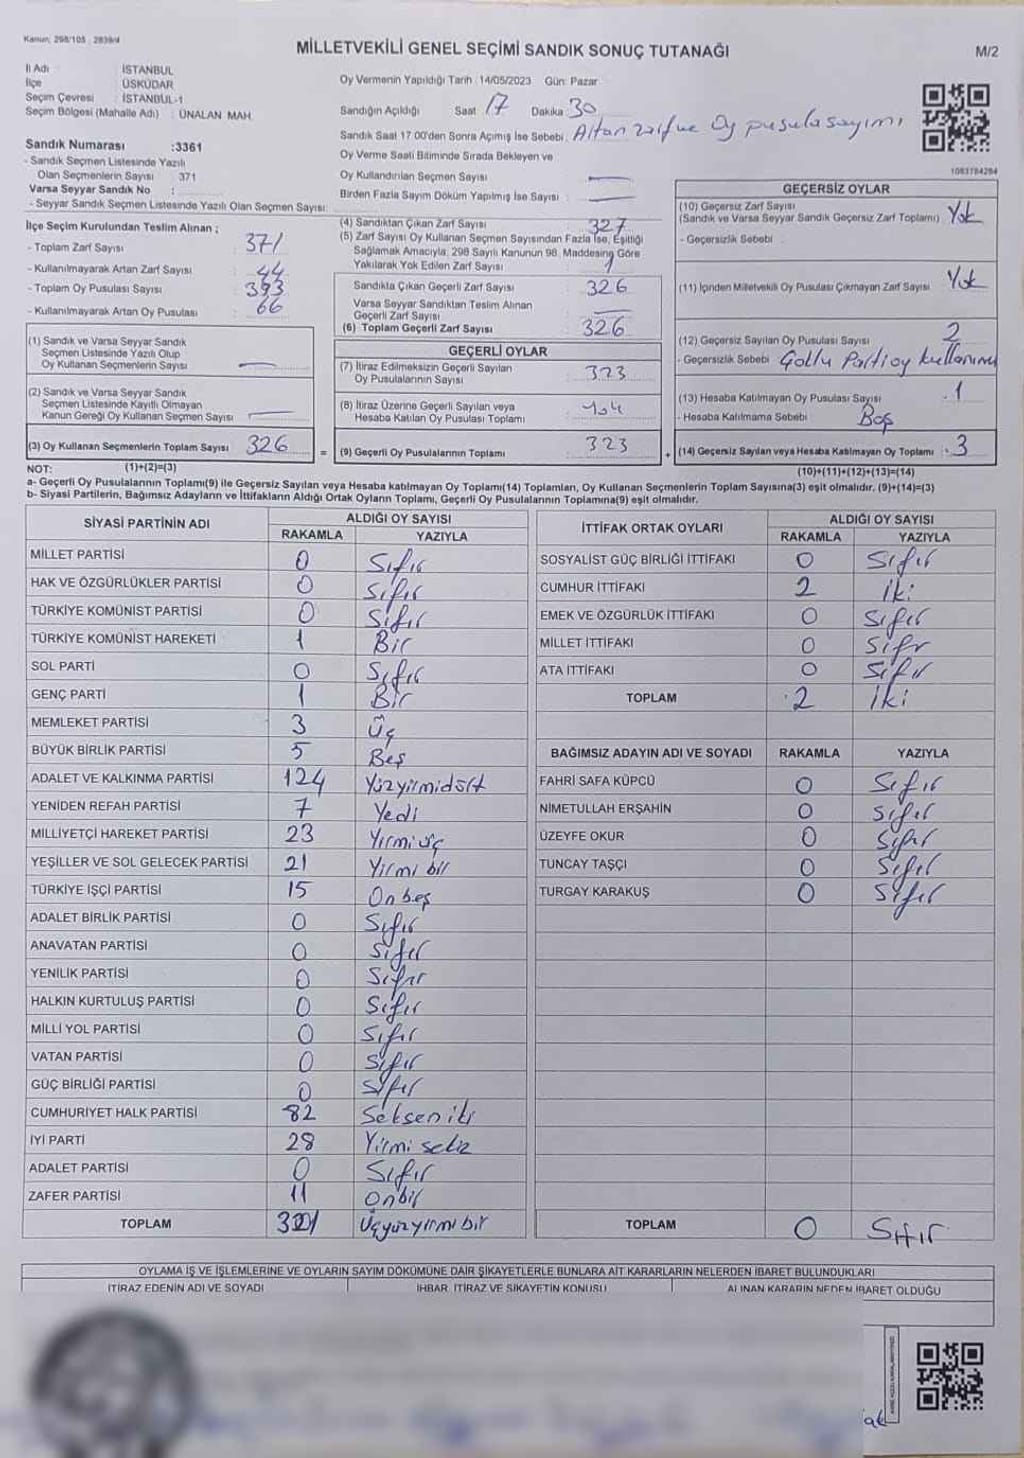 Kanun: 298/105 2839/4
MİLLETVEKİLİ GENEL SEÇİMİ SANDIK SONUÇ TUTANAĞI
M/2
İl Adı : İSTANBUL
İlçe : ÜSKÜDAR
Seçim Çevresi : İSTANBUL-1
Seçim Bölgesi (Mahalle Adı) : ÜNALAN MAH.
Sandık Numarası :3361
- Sandık Seçmen Listesinde Yazılı
Olan Seçmenlerin Sayısı : 371
Varsa Seyyar Sandık No :
- Seyyar Sandık Seçmen Listesinde Yazılı Olan Seçmen Sayısı:
Oy Vermenin Yapıldığı Tarih : 14/05/2023 Gün: Pazar
Sandığın Açıldığı Saat 17 Dakika 30
Sandık Saat 17.00'den Sonra Açımış İse Sebebi: Artan zarf ve Oy pusula sayımı
Oy Verme Saati Bitiminde Sırada Bekleyen ve
Oy Kullandırılan Seçmen Sayısı : —
Birden Fazla Sayım Döküm Yapılmış İse Sayısı : —
1083784284
İlçe Seçim Kurulundan Teslim Alınan ;
- Toplam Zarf Sayısı : 371
- Kullanılmayarak Artan Zarf Sayısı : 44
- Toplam Oy Pusulası Sayısı : 393
- Kullanılmayarak Artan Oy Pusulası : 66
(1) Sandık ve Varsa Seyyar Sandık
Seçmen Listesinde Yazılı Olup
Oy Kullanan Seçmenlerin Sayısı : —
(2) Sandık ve Varsa Seyyar Sandık
Seçmen Listesinde Kayıtlı Olmayan
Kanun Gereği Oy Kullanan Seçmen Sayısı : —
(3) Oy Kullanan Seçmenlerin Toplam Sayısı : 326
(4) Sandıktan Çıkan Zarf Sayısı : 327
(5) Zarf Sayısı Oy Kullanan Seçmen Sayısından Fazla İse, Eşitliği
Sağlamak Amacıyla, 298 Sayılı Kanunun 98. Maddesine Göre
Yakılarak Yok Edilen Zarf Sayısı : 1
Sandıkta Çıkan Geçerli Zarf Sayısı : 326
Varsa Seyyar Sandıktan Teslim Alınan
Geçerli Zarf Sayısı : —
(6) Toplam Geçerli Zarf Sayısı : 326
GEÇERLİ OYLAR
(7) İtiraz Edilmeksizin Geçerli Sayılan
Oy Pusulalarının Sayısı : 323
(8) İtiraz Üzerine Geçerli Sayılan veya
Hesaba Katılan Oy Pusulası Toplamı :
= (9) Geçerli Oy Pusulalarının Toplamı : 323
GEÇERSİZ OYLAR
(10) Geçersiz Zarf Sayısı
(Sandık ve Varsa Seyyar Sandık Geçersiz Zarf Toplamı) : Yok
- Geçersizlik Sebebi :
(11) İçinden Milletvekili Oy Pusulası Çıkmayan Zarf Sayısı : Yok
(12) Geçersiz Sayılan Oy Pusulası Sayısı : 2
- Geçersizlik Sebebi : Çoklu Parti oy kullanımı
(13) Hesaba Katılmayan Oy Pusulası Sayısı : 1
- Hesaba Katılmama Sebebi : Boş
+ (14) Geçersiz Sayılan veya Hesaba Katılmayan Oy Toplamı : 3
NOT: (1)+(2)=(3) (10)+(11)+(12)+(13)=(14)
a- Geçerli Oy Pusulalarının Toplamı(9) ile Geçersiz Sayılan veya Hesaba katılmayan Oy Toplamı(14) Toplamları, Oy Kullanan Seçmenlerin Toplam Sayısına(3) eşit olmalıdır. (9)+(14)=(3)
b- Siyasi Partilerin, Bağımsız Adayların ve İttifakların Aldığı Ortak Oyların Toplamı, Geçerli Oy Pusulalarının Toplamına(9) eşit olmalıdır.
SİYASİ PARTİNİN ADI ALDIĞI OY SAYISI
RAKAMLA YAZIYLA
MİLLET PARTİSİ 0 Sıfır
HAK VE ÖZGÜRLÜKLER PARTİSİ 0 Sıfır
TÜRKİYE KOMÜNİST PARTİSİ 0 Sıfır
TÜRKİYE KOMÜNİST HAREKETİ 1 Bir
SOL PARTİ 0 Sıfır
GENÇ PARTİ 1 Bir
MEMLEKET PARTİSİ 3 Üç
BÜYÜK BİRLİK PARTİSİ 5 Beş
ADALET VE KALKINMA PARTİSİ 124 Yüzyirmidört
YENİDEN REFAH PARTİSİ 7 Yedi
MİLLİYETÇİ HAREKET PARTİSİ 23 Yirmi üç
YEŞİLLER VE SOL GELECEK PARTİSİ 21 Yirmi bir
TÜRKİYE İŞÇİ PARTİSİ 15 On beş
ADALET BİRLİK PARTİSİ 0 Sıfır
ANAVATAN PARTİSİ 0 Sıfır
YENİLİK PARTİSİ 0 Sıfır
HALKIN KURTULUŞ PARTİSİ 0 Sıfır
MİLLİ YOL PARTİSİ 0 Sıfır
VATAN PARTİSİ 0 Sıfır
GÜÇ BİRLİĞİ PARTİSİ 0 Sıfır
CUMHURİYET HALK PARTİSİ 82 Seksen iki
İYİ PARTİ 28 Yirmi sekiz
ADALET PARTİSİ 0 Sıfır
ZAFER PARTİSİ 11 Onbir
TOPLAM 321 Üçyüzyirmi bir
İTTİFAK ORTAK OYLARI ALDIĞI OY SAYISI
RAKAMLA YAZIYLA
SOSYALİST GÜÇ BİRLİĞİ İTTİFAKI 0 Sıfır
CUMHUR İTTİFAKI 2 iki
EMEK VE ÖZGÜRLÜK İTTİFAKI 0 Sıfır
MİLLET İTTİFAKI 0 Sıfır
ATA İTTİFAKI 0 Sıfır
TOPLAM 2 iki
BAĞIMSIZ ADAYIN ADI VE SOYADI RAKAMLA YAZIYLA
FAHRİ SAFA KÜPCÜ 0 Sıfır
NİMETULLAH ERŞAHİN 0 Sıfır
ÜZEYFE OKUR 0 Sıfır
TUNCAY TAŞÇI 0 Sıfır
TURGAY KARAKUŞ 0 Sıfır
TOPLAM 0 Sıfır
OYLAMA İŞ VE İŞLEMLERİNE VE OYLARIN SAYIM DÖKÜMÜNE DAİR ŞİKAYETLERLE BUNLARA AİT KARARLARIN NELERDEN İBARET BULUNDUKLARI
İTİRAZ EDENİN ADI VE SOYADI İHBAR, İTİRAZ VE ŞİKAYETİN KONUSU ALINAN KARARIN NEDEN İBARET OLDUĞU